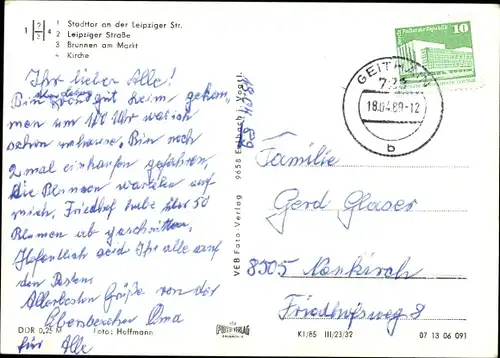 1 2/3 4
1 Stadttor an der Leipziger Str.
2 Leipziger Straße
3 Brunnen am Markt
4 Kirche
Ihr lieben Alle!
Bin gut heim gekom,
men um Uhr war ich
schon zuhause. Bin noch
2 mal einkaufen gefahren,
die Blumen warteten auf
mich, Friedhof habe über 50
Blumen ab geschnitten,
Hoffentlich seid Ihr alle auf
den Posten.
Allerbesten Grüße von der
Oma
für Alle
DDR 0,25 M Foto: Hoffmann
VEB Foto-Verlag 9658 Erlbach i. Vogtl.
18.04.89
FOTO-VERLAG
ERLBACH
GEITHAIN
18.04.89-12
b
Palast der Republik
10
DDR
Familie
Gerd Glaser
8505 Neukirch
Friedhofsweg 8
K1/85 III/23/32 07 13 06 091